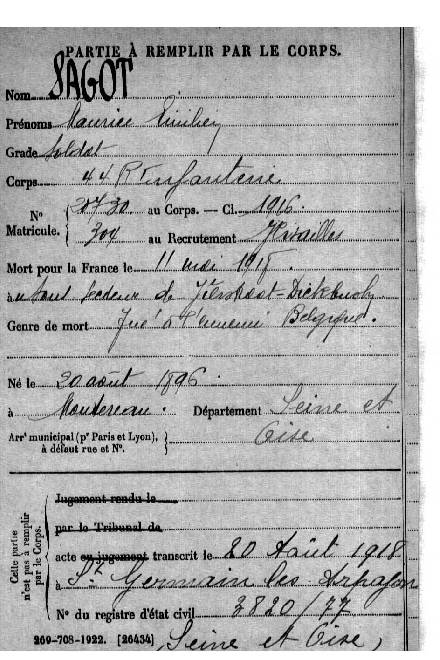 PARTIE À REMPLIR PAR LE CORPS.
Nom SAGOT
Prénoms Maurice
Grade Soldat
Corps 44 R Infanterie
N° Matricule. { 20730 au Corps. — Cl. 1916
304 au Recrutement Versailles
Mort pour la France le 11 mai 1918.
à
Genre de mort Tué à l'ennemi Belgique.
Né le 20 août 1896.
à Montereau. Département Seine et
Oise
Arr^t municipal (p^r Paris et Lyon), à défaut rue et N°. }
Cette partie n'est pas à remplir par le Corps.
Jugement rendu le
par le Tribunal de
acte ou jugement transcrit le 20 Août 1918
à St Germain les Arpajon
N° du registre d'état civil 3820/77
269-708-1922. [26434] (Seine et Oise)